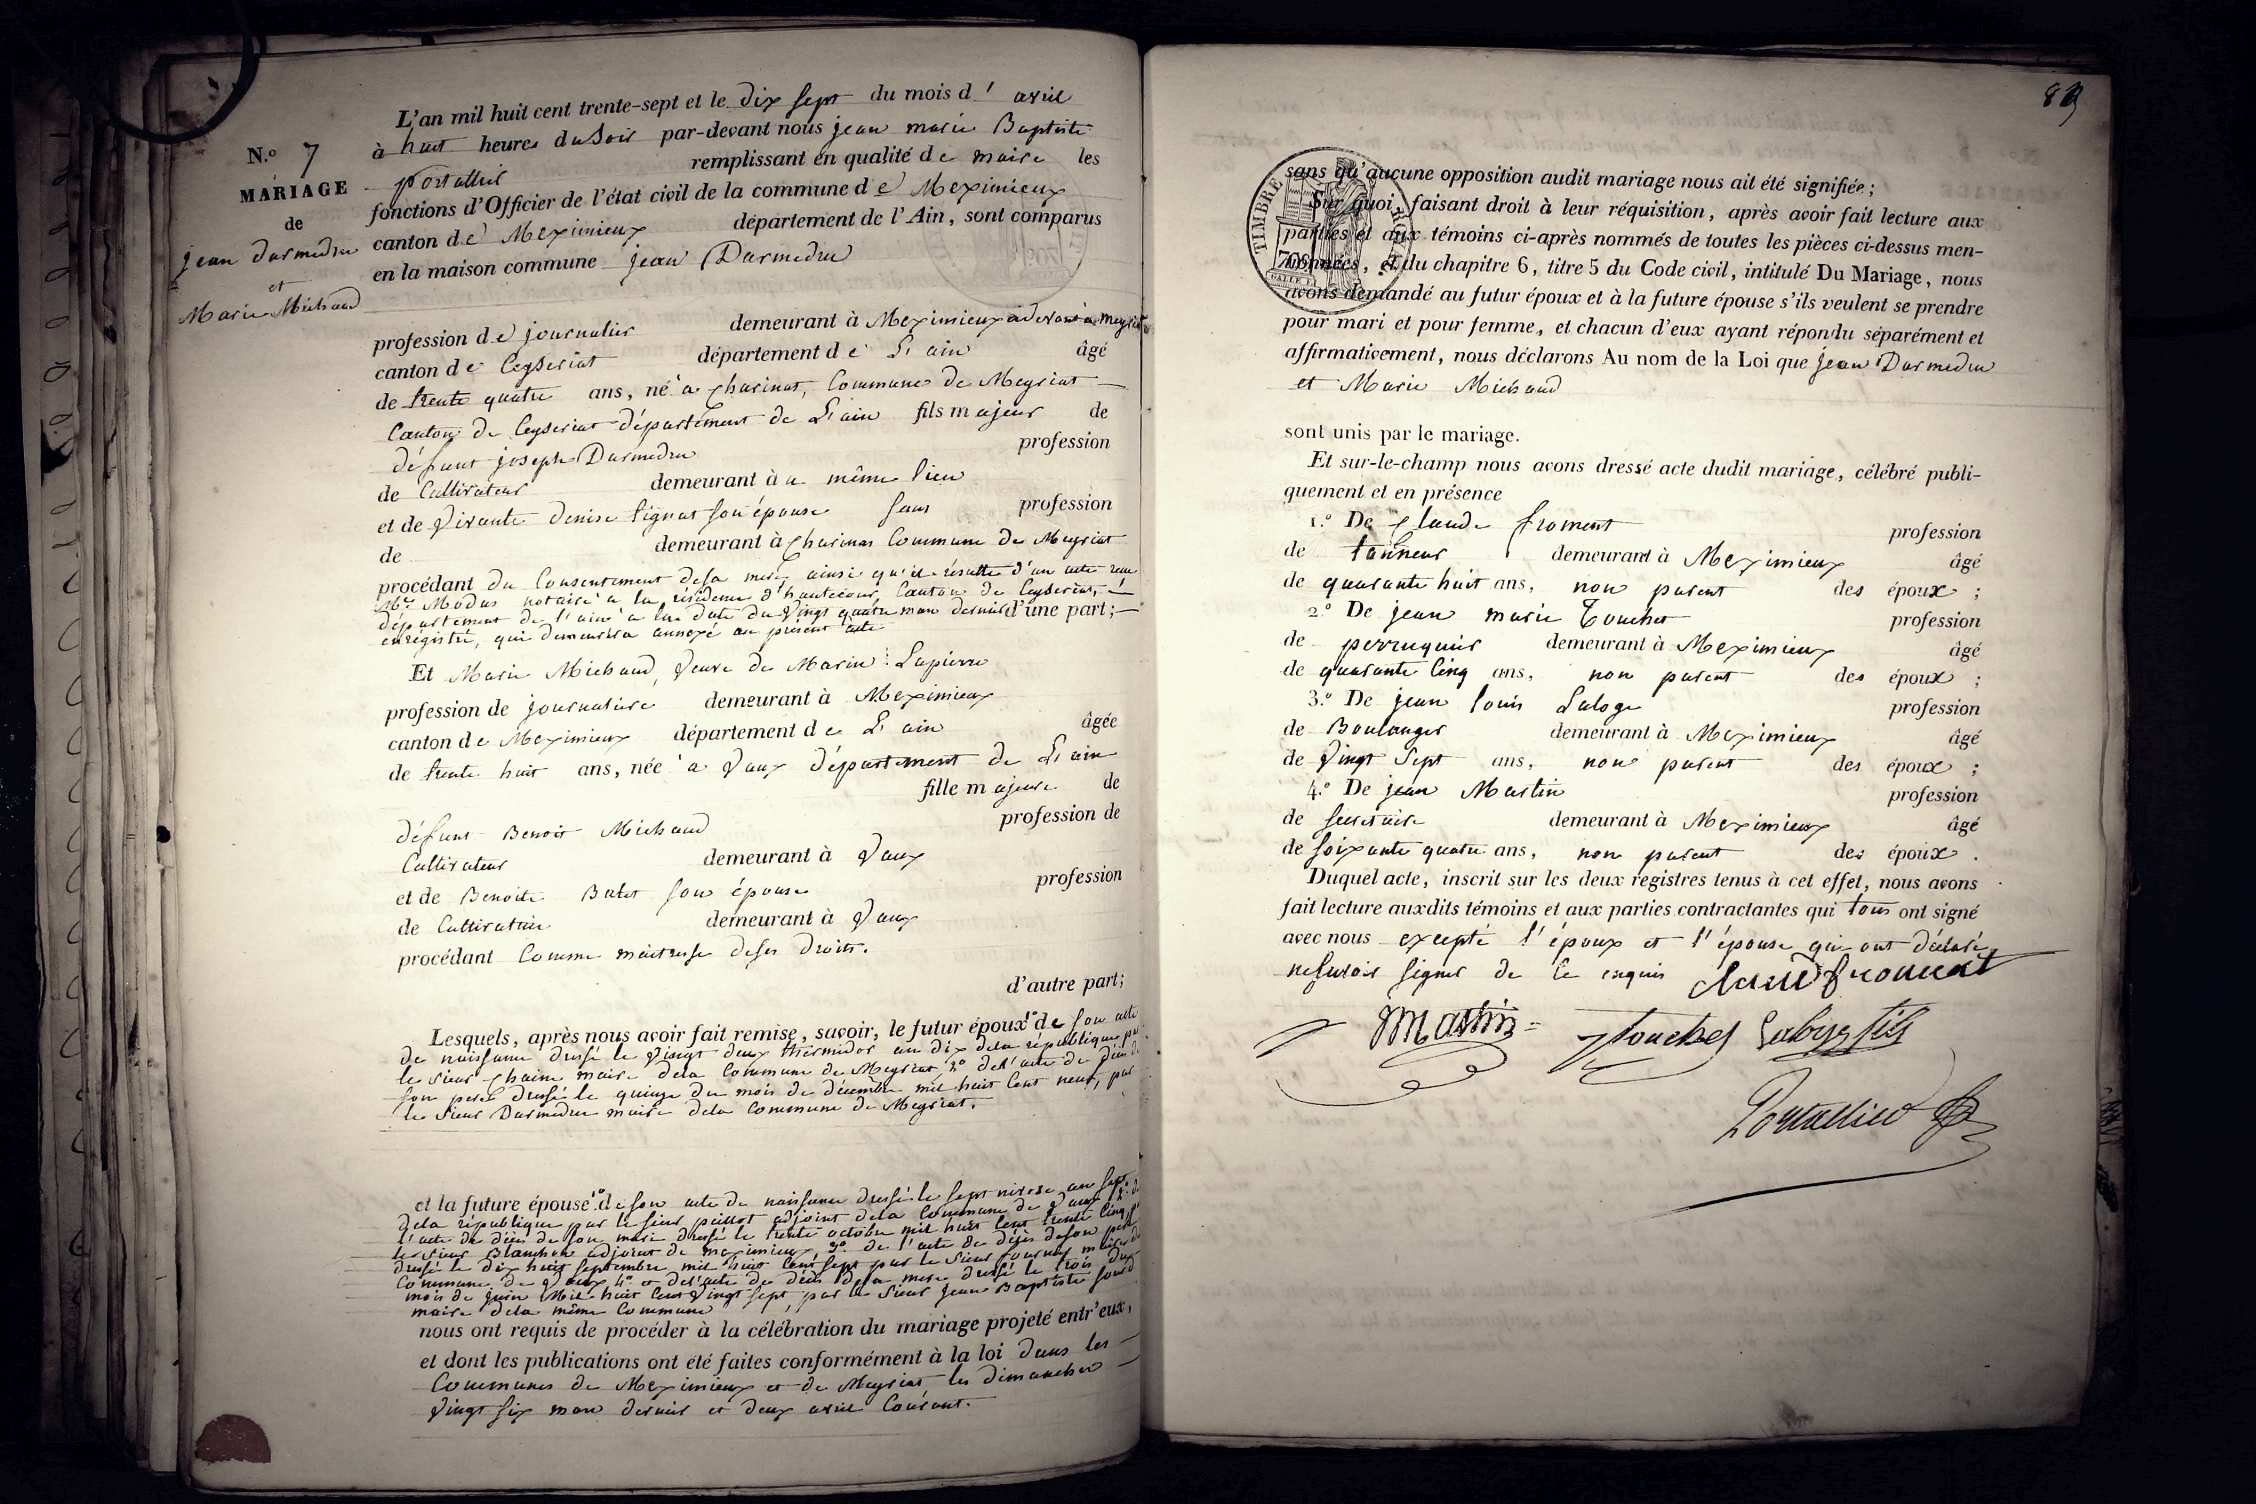 L'an mil huit cent trente-sept et le dix sept du mois d' avril
à huit heures du Soir par-devant nous jean marie Baptiste
portallier remplissant en qualité de maire les
fonctions d'Officier de l'état civil de la commune de Meximieux
canton de Meximieux département de l'Ain, sont comparus
en la maison commune jean Darmedru
N.o 7
MARIAGE
de
jean darmedru
et
Marie Michaud
profession de journalier demeurant à Meximieux adevant à meyriat
canton de Ceyseriat département de L'ain âgé
de trente quatre ans, né à Charinat, Commune de Meyriat
Canton de Ceyseriat département de L'ain fils majeur de
défunt joseph Darmedru profession
de Cultivateur demeurant à u même lieu
et de vivante denise tignat son épouse sans profession
de demeurant à Charinas Commune de Meyriat
procédant du Consentement de sa mere, ainsi qu'il résulte d'un acte recu
Me Modas notaire à la résidence d'hautecour, Canton de Ceyseriat,
département de l'ain à la date du vingt quatre mars dernier d'une part;
enrégistré, qui demeurera annexé au présent acte
Et Marie Michaud, veuve de Marin Lapierre
profession de journaliere demeurant à Meximieux
canton de Meximieux département de L'ain âgée
de trente huit ans, née à vaux département de L'ain
fille majeure de
défunt Benoit Michaud profession de
Cultivateur demeurant à vaux
et de Benoite Batet son épouse profession
de Cultivatrice demeurant à vaux
procédant Comme maitresse de ses droits.
d'autre part;
Lesquels, après nous avoir fait remise, savoir, le futur époux 1o de son acte
de naissance dressé le vingt deux thermidor an dix de la république par
le sieur Chaine maire de la Commune de Meyriat, 2o de l'acte de décès de
son pere dressé le quinze du mois de décembre mil huit Cent neuf, par
le sieur Darmedru maire de la Commune de Meyriat.
et la future épouse 1o de son acte de naissance dressé le sept nivose an sept
de la république par le sieur paillot adjoint de la Commune de vaux 2o de
l'acte de décès de son mari dressé le trente octobre mil huit Cent trente Cinq par
le sieur Blanchon adjoint de meximieux, 3o de l'acte de décès de son pere
dressé le dix huit septembre mil huit Cent sept par le sieur journet maire de la
Commune de vaux 4o et de l'acte de décès de sa mere dressé le trois du
mois de juin Mil huit Cent vingt sept, par le sieur jean Baptiste
maire de la même Commune
nous ont requis de procéder à la célébration du mariage projeté entr'eux,
et dont les publications ont été faites conformément à la loi dans les
Communes de Meximieux et de Meyriat les dimanches
vingt six mars dernier et deux avril Courant.
89
TIMBRE ROYAL
70c
sans qu'aucune opposition audit mariage nous ait été signifiée;
Sur quoi, faisant droit à leur réquisition, après avoir fait lecture aux
parties et aux témoins ci-après nommés de toutes les pièces ci-dessus men-
tionnées, et du chapitre 6, titre 5 du Code civil, intitulé Du Mariage, nous
avons demandé au futur époux et à la future épouse s'ils veulent se prendre
pour mari et pour femme, et chacun d'eux ayant répondu séparément et
affirmativement, nous déclarons Au nom de la Loi que jean Darmedru
et Marie Michaud
sont unis par le mariage.
Et sur-le-champ nous avons dressé acte dudit mariage, célébré publi-
quement et en présence
1.o De Claude froment profession
de tanneur demeurant à Meximieux âgé
de quarante huit ans, non parent des époux;
2.o De jean marie Touchet profession
de perruquier demeurant à Meximieux âgé
de quarante Cinq ans, non parent des époux;
3.o De jean louis Laloge profession
de Boulanger demeurant à Meximieux âgé
de vingt Sept ans, non parent des époux;
4.o De jean Martin profession
de secretaire demeurant à Meximieux âgé
de soixante quatre ans, non parent des époux.
Duquel acte, inscrit sur les deux registres tenus à cet effet, nous avons
fait lecture auxdits témoins et aux parties contractantes qui tous ont signé
avec nous excepté l'époux et l'épouse qui ont déclaré
ne savoir signer de Ce enquis Claude froment
JM Martin Touchet Laloge fils
Portallier